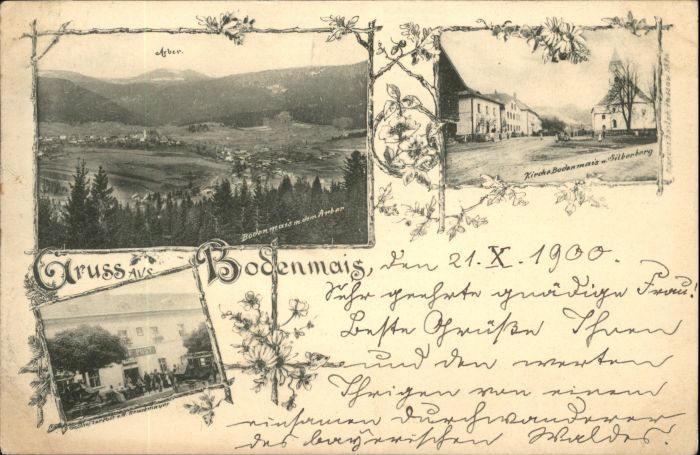 Arber.
Bodenmais m. dem Arber
Kirche Bodenmais u. Silberberg
Gruss aus Bodenmais, den 21. X. 1900.
Sehr geehrte gnädige Frau!
Beste Grüße Ihnen
und den werten
Ihrigen von einem
einsamen Durchwanderer
des bayerischen Waldes.